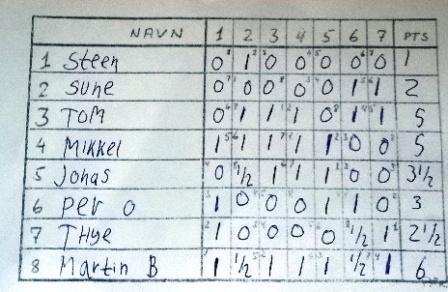 NAVN 1 2 3 4 5 6 7 PTS
1 Steen 0 1 0 0 0 0 0 1
2 Sune 0 0 0 0 0 1 1 2
3 TOM 0 1 1 1 0 1 1 5
4 Mikkel 1 1 1 1 1 0 0 5
5 Jonas 0 1/2 1 1 1 0 0 3 1/2
6 Per O 1 0 0 0 1 1 0 3
7 THYE 1 0 0 0 0 1/2 1 2 1/2
8 Martin B 1 1/2 1 1 1 1/2 1 6